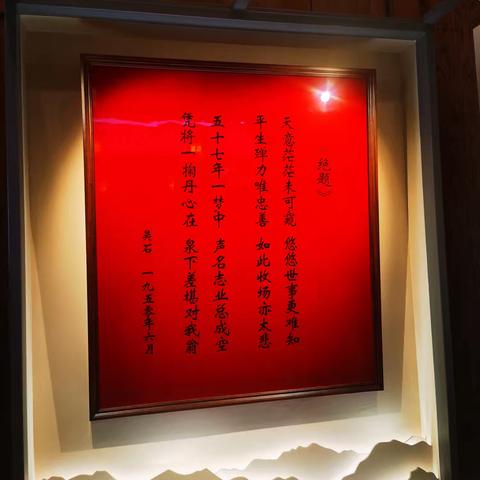 《绝题》
天意茫茫未可窥 悠悠世事更难知
平生殚力唯忠善 如此收场亦太悲
五十七年一梦中 声名志业总成空
凭将一掬丹心在 泉下差堪对我翁
吴石 一九五零年六月